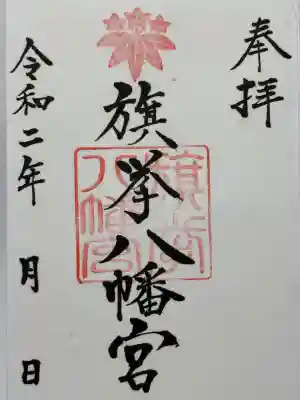 奉拝
旗挙八幡宮
令和二年 月 日